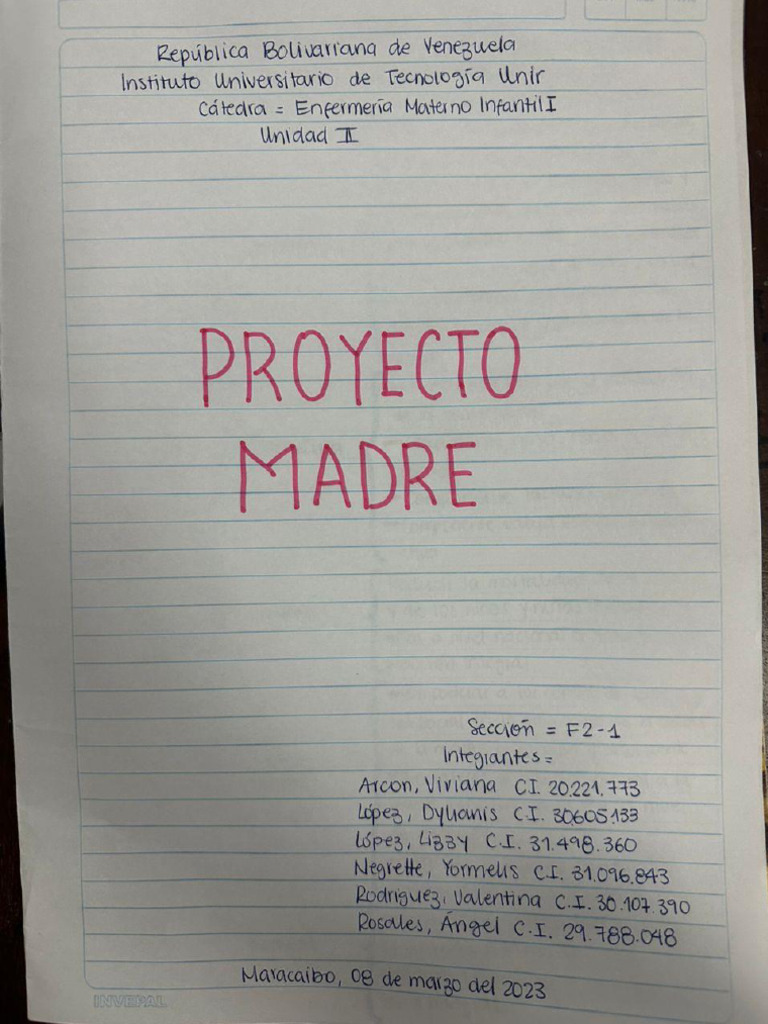 República Bolivariana de Venezuela
Instituto Universitario de Tecnología Unir
Cátedra = Enfermería Materno Infantil I
Unidad II
PROYECTO
MADRE
Sección = F2-1
Integrantes =
Arcon, Viviana C.I. 20.221.773
López, Dylianis C.I. 30605133
López, Lizzy C.I. 31.498.360
Negrette, Yormelis C.I. 31.096.843
Rodríguez, Valentina C.I. 30.107.390
Rosales, Ángel C.I. 29.788.048
Maracaibo, 08 de marzo del 2023
INVEPAL